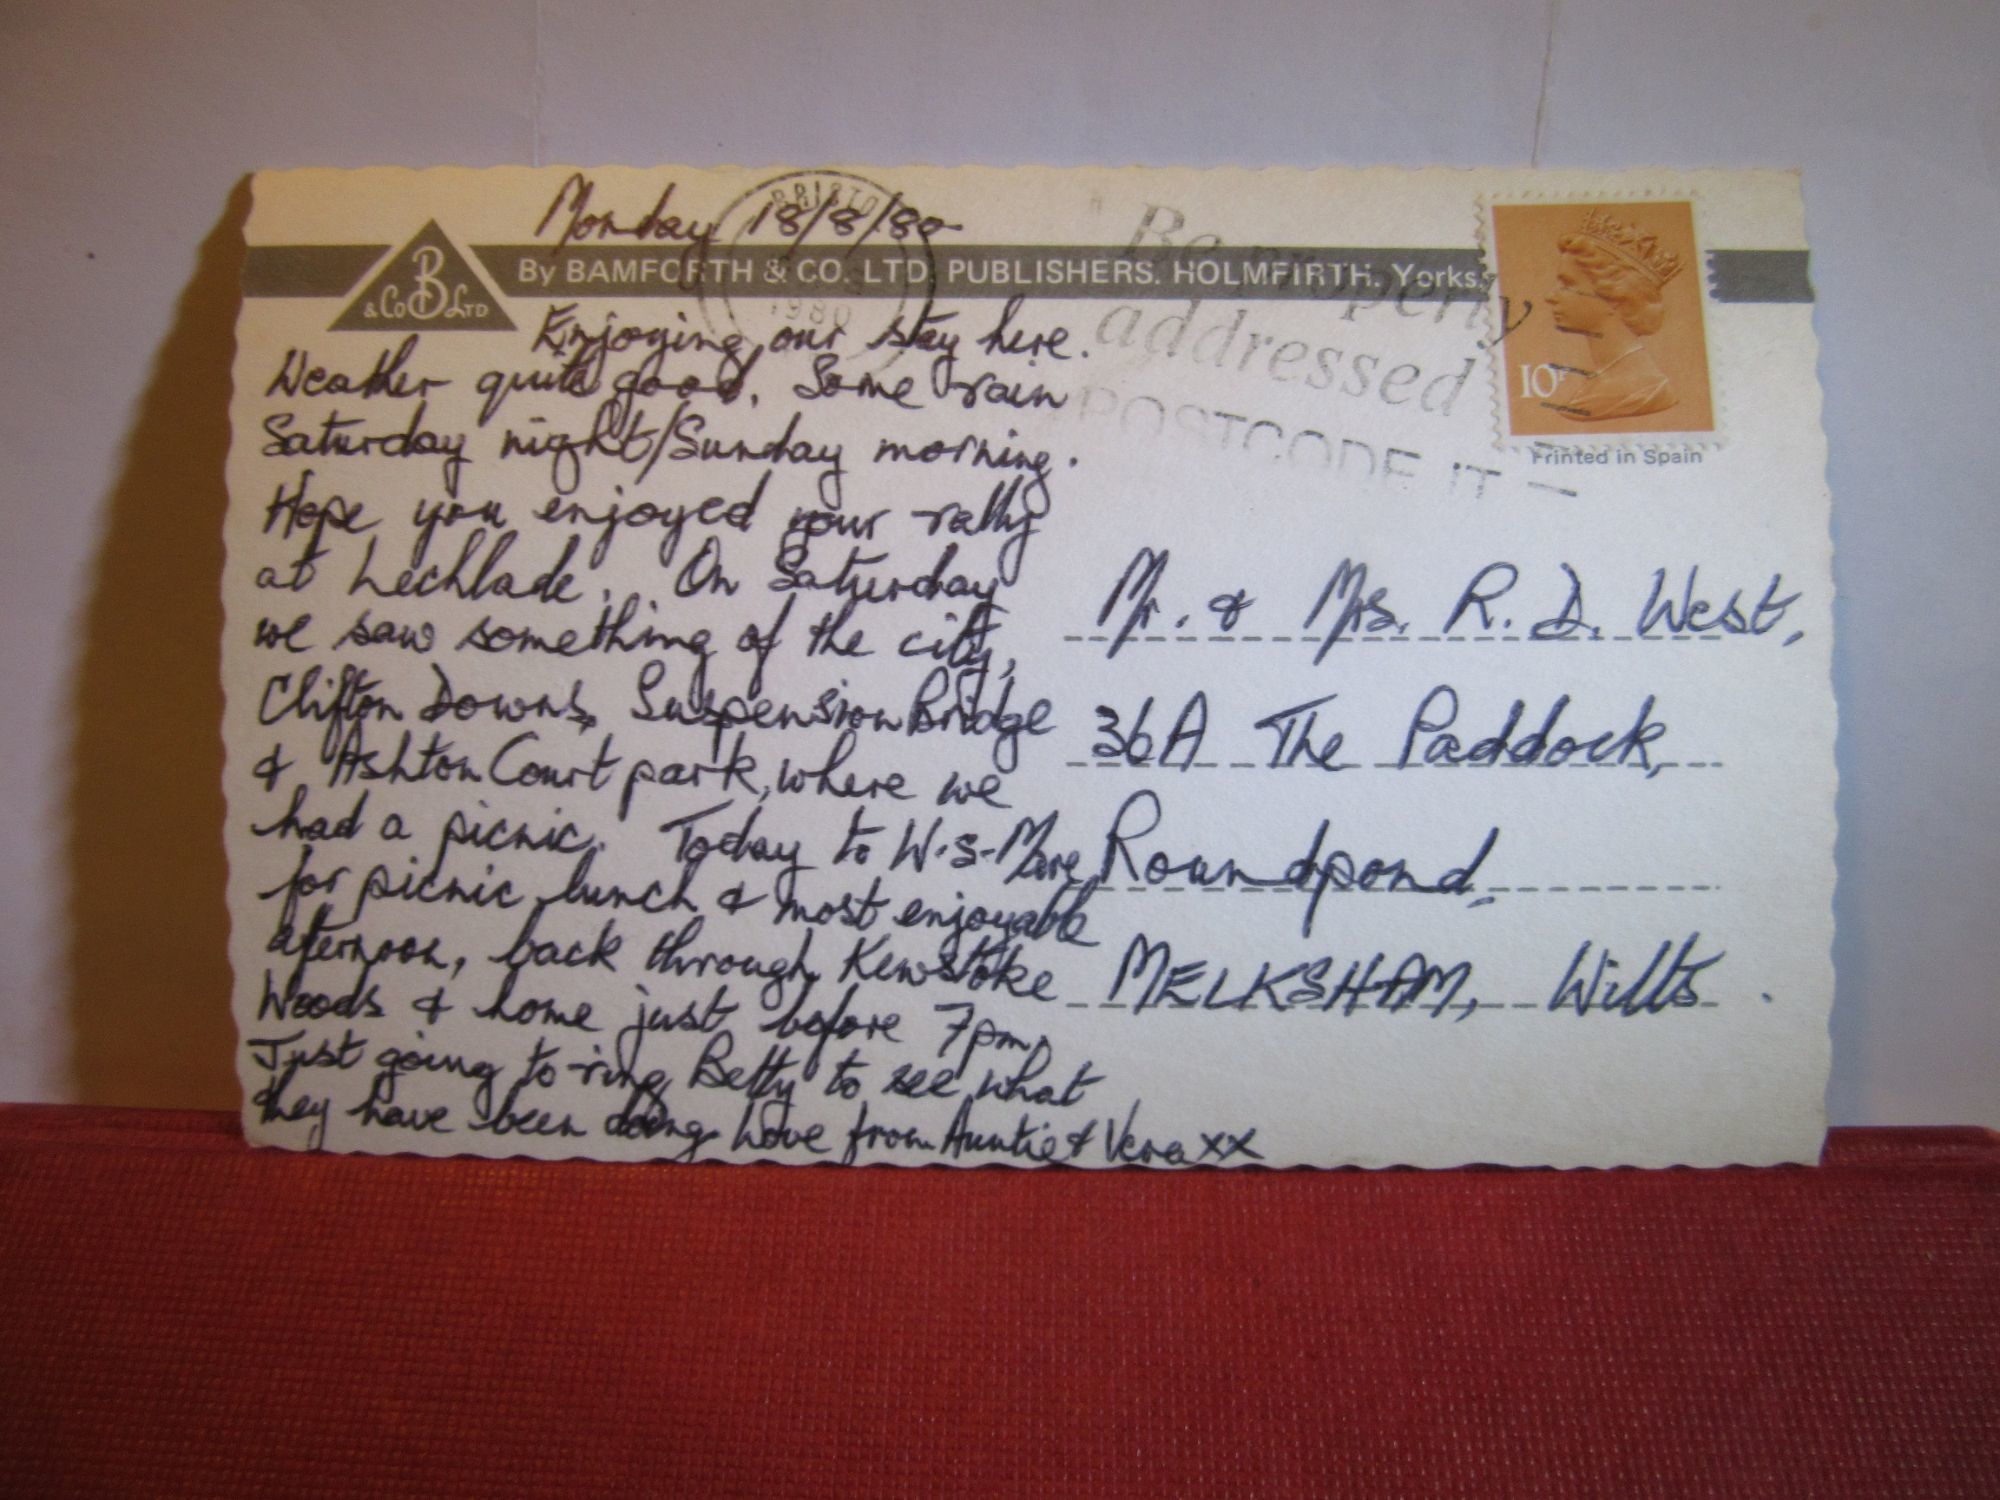 Monday 18/8/80
BRISTO
1980
Be properly
addressed
POSTCODE IT —
B
& Co LTD
By BAMFORTH & CO. LTD. PUBLISHERS. HOLMFIRTH. Yorks.
10P
Printed in Spain
Enjoying our stay here.
Weather quite good. Some rain
Saturday night/Sunday morning.
Hope you enjoyed your rally
at Lechlade. On Saturday
we saw something of the city,
Clifton Downs, Suspension Bridge
& Ashton Court park, where we
had a picnic. Today to W-S-Mare
for picnic lunch & most enjoyable
afternoon, back through Kewstoke
Woods & home just before 7pm.
Just going to ring Betty to see what
they have been doing. Love from Auntie & Vera xx
Mr. & Mrs. R. D. West,
36A The Paddock,
Roundpond,
MELKSHAM, Wilts.